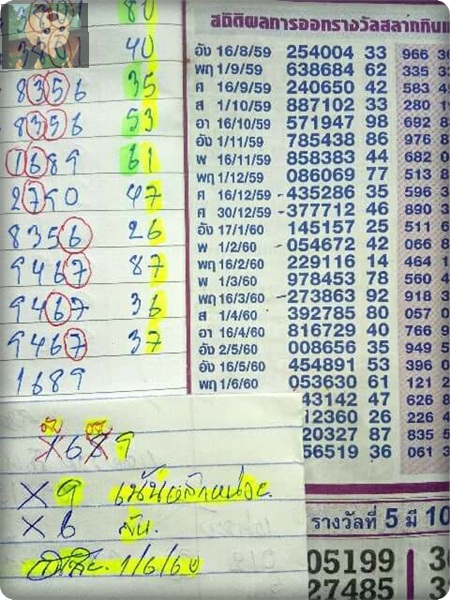 สถิติผลการออกรางวัลสลากกินแ
อัง 16/8/59 254004 33 966
พฤ 1/9/59 638684 62 335
ศ 16/9/59 240650 42 583
ส 1/10/59 887102 33 280
อา 16/10/59 571947 98 692
อัง 1/11/59 785438 86 976
พ 16/11/59 858383 44 682
พฤ 1/12/59 086069 77 513
ศ 16/12/59 -435286 35 596
ศ 30/12/59 -377712 46 890
อัง 17/1/60 145157 25 511
พ 1/2/60 054672 42 066
พฤ 16/2/60 229116 14 464
พ 1/3/60 978453 78 560
พฤ 16/3/60 -273863 92 918
ส 1/4/60 392785 80 057
อา 16/4/60 816729 40 766
อัง 2/5/60 008656 35 949
อัง 16/5/60 454891 53 396
พฤ 1/6/60 053630 61 121
43142 47 626
12360 26 226
20327 87 835
56519 36 061
รางวัลที่ 5 มี 10
05199
27485
80
40
8356 35
8356 53
1689 61
2790 47
8356 26
9467 87
9467 36
9467 37
1689
X6X9
X9 เน้นหลักหน่วย
X6
1/6/60